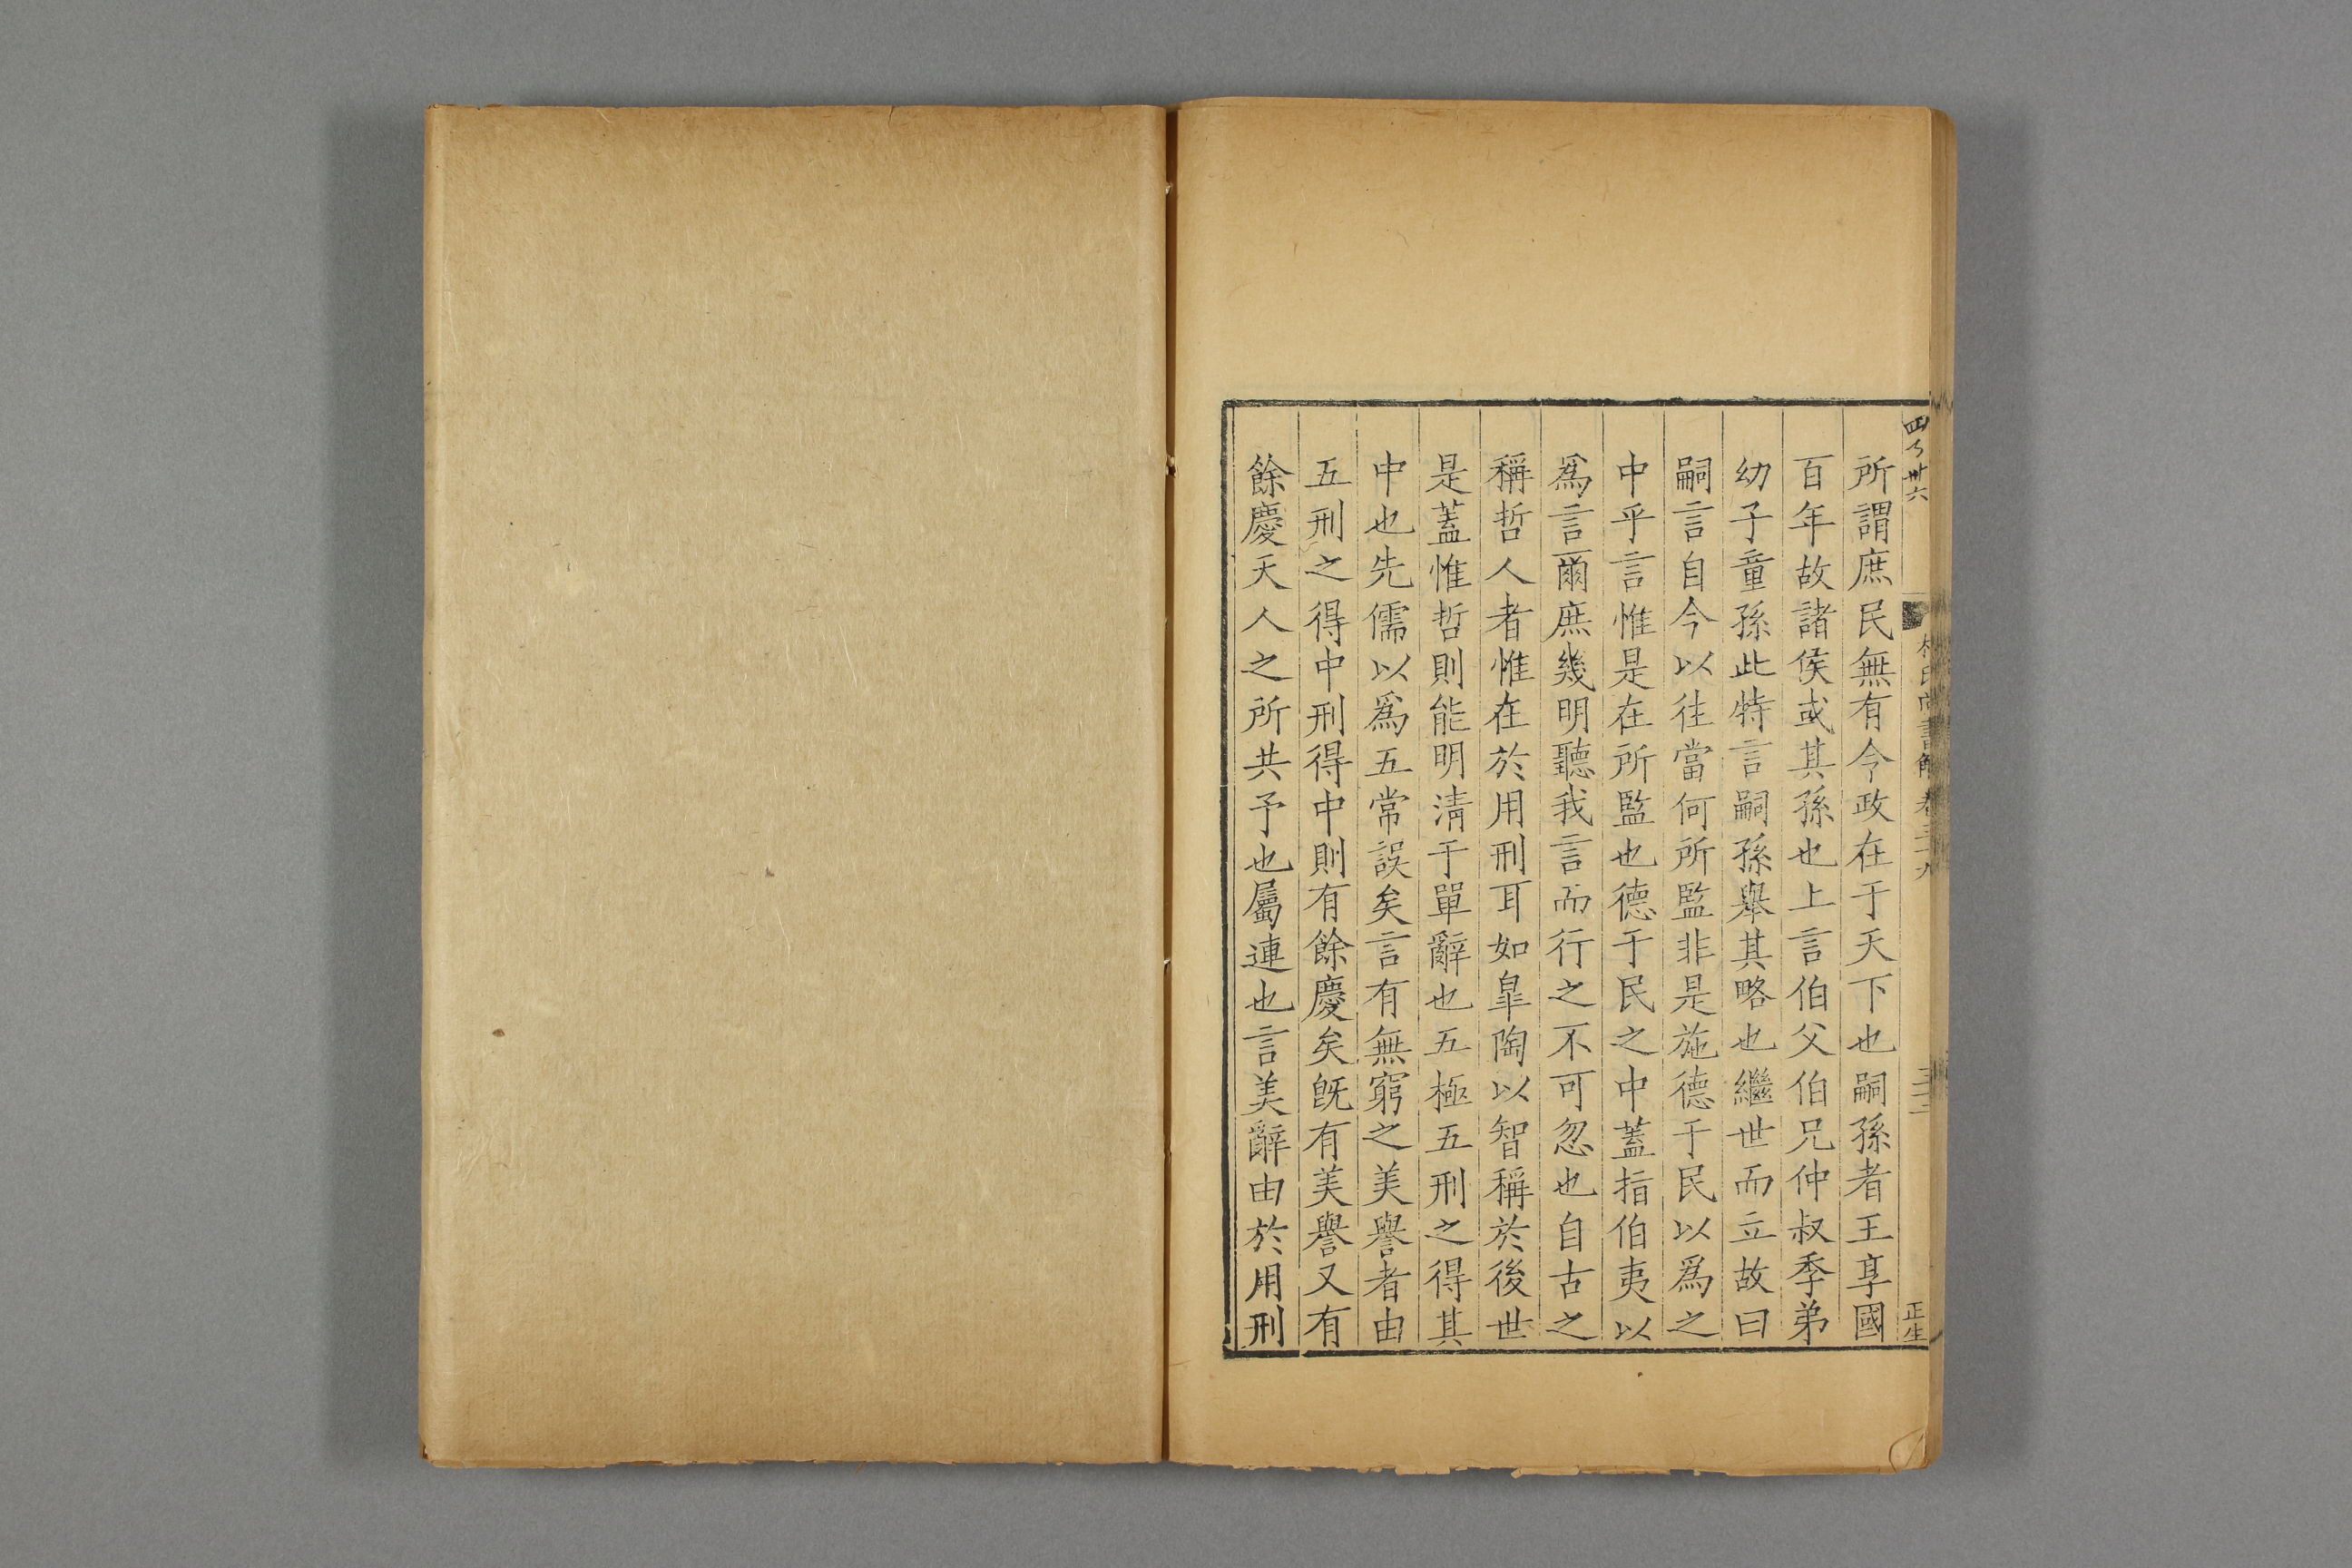 所謂庶民無有令政在于天下也嗣孫者王享國
百年故諸侯或其孫也上言伯父伯兄仲叔季弟
幼子童孫此特言嗣孫舉其略也繼世而立故曰
嗣言自今以往當何所監非是施德于民以爲之
中乎言惟是在所監也德于民之中蓋指伯夷以
爲言爾庶幾明聽我言而行之不可忽也自古之
稱哲人者惟在於用刑耳如臯陶以智稱於後世
是蓋惟哲則能明清于單辭也五極五刑之得其
中也先儒以爲五常誤矣言有無窮之美譽者由
五刑之得中刑得中則有餘慶矣旣有美譽又有
餘慶天人之所共予也屬連也言美辭由於用刑